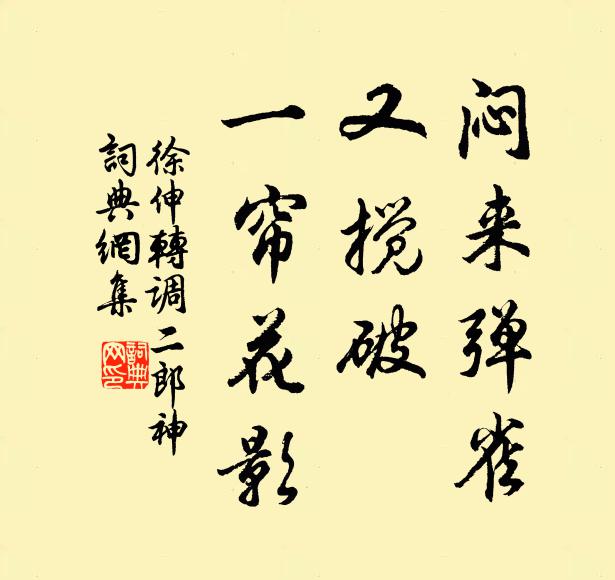 闷来弹雀
又搅破
一帘花影
徐伸轉调二郎神
詞典網集
詞典网印